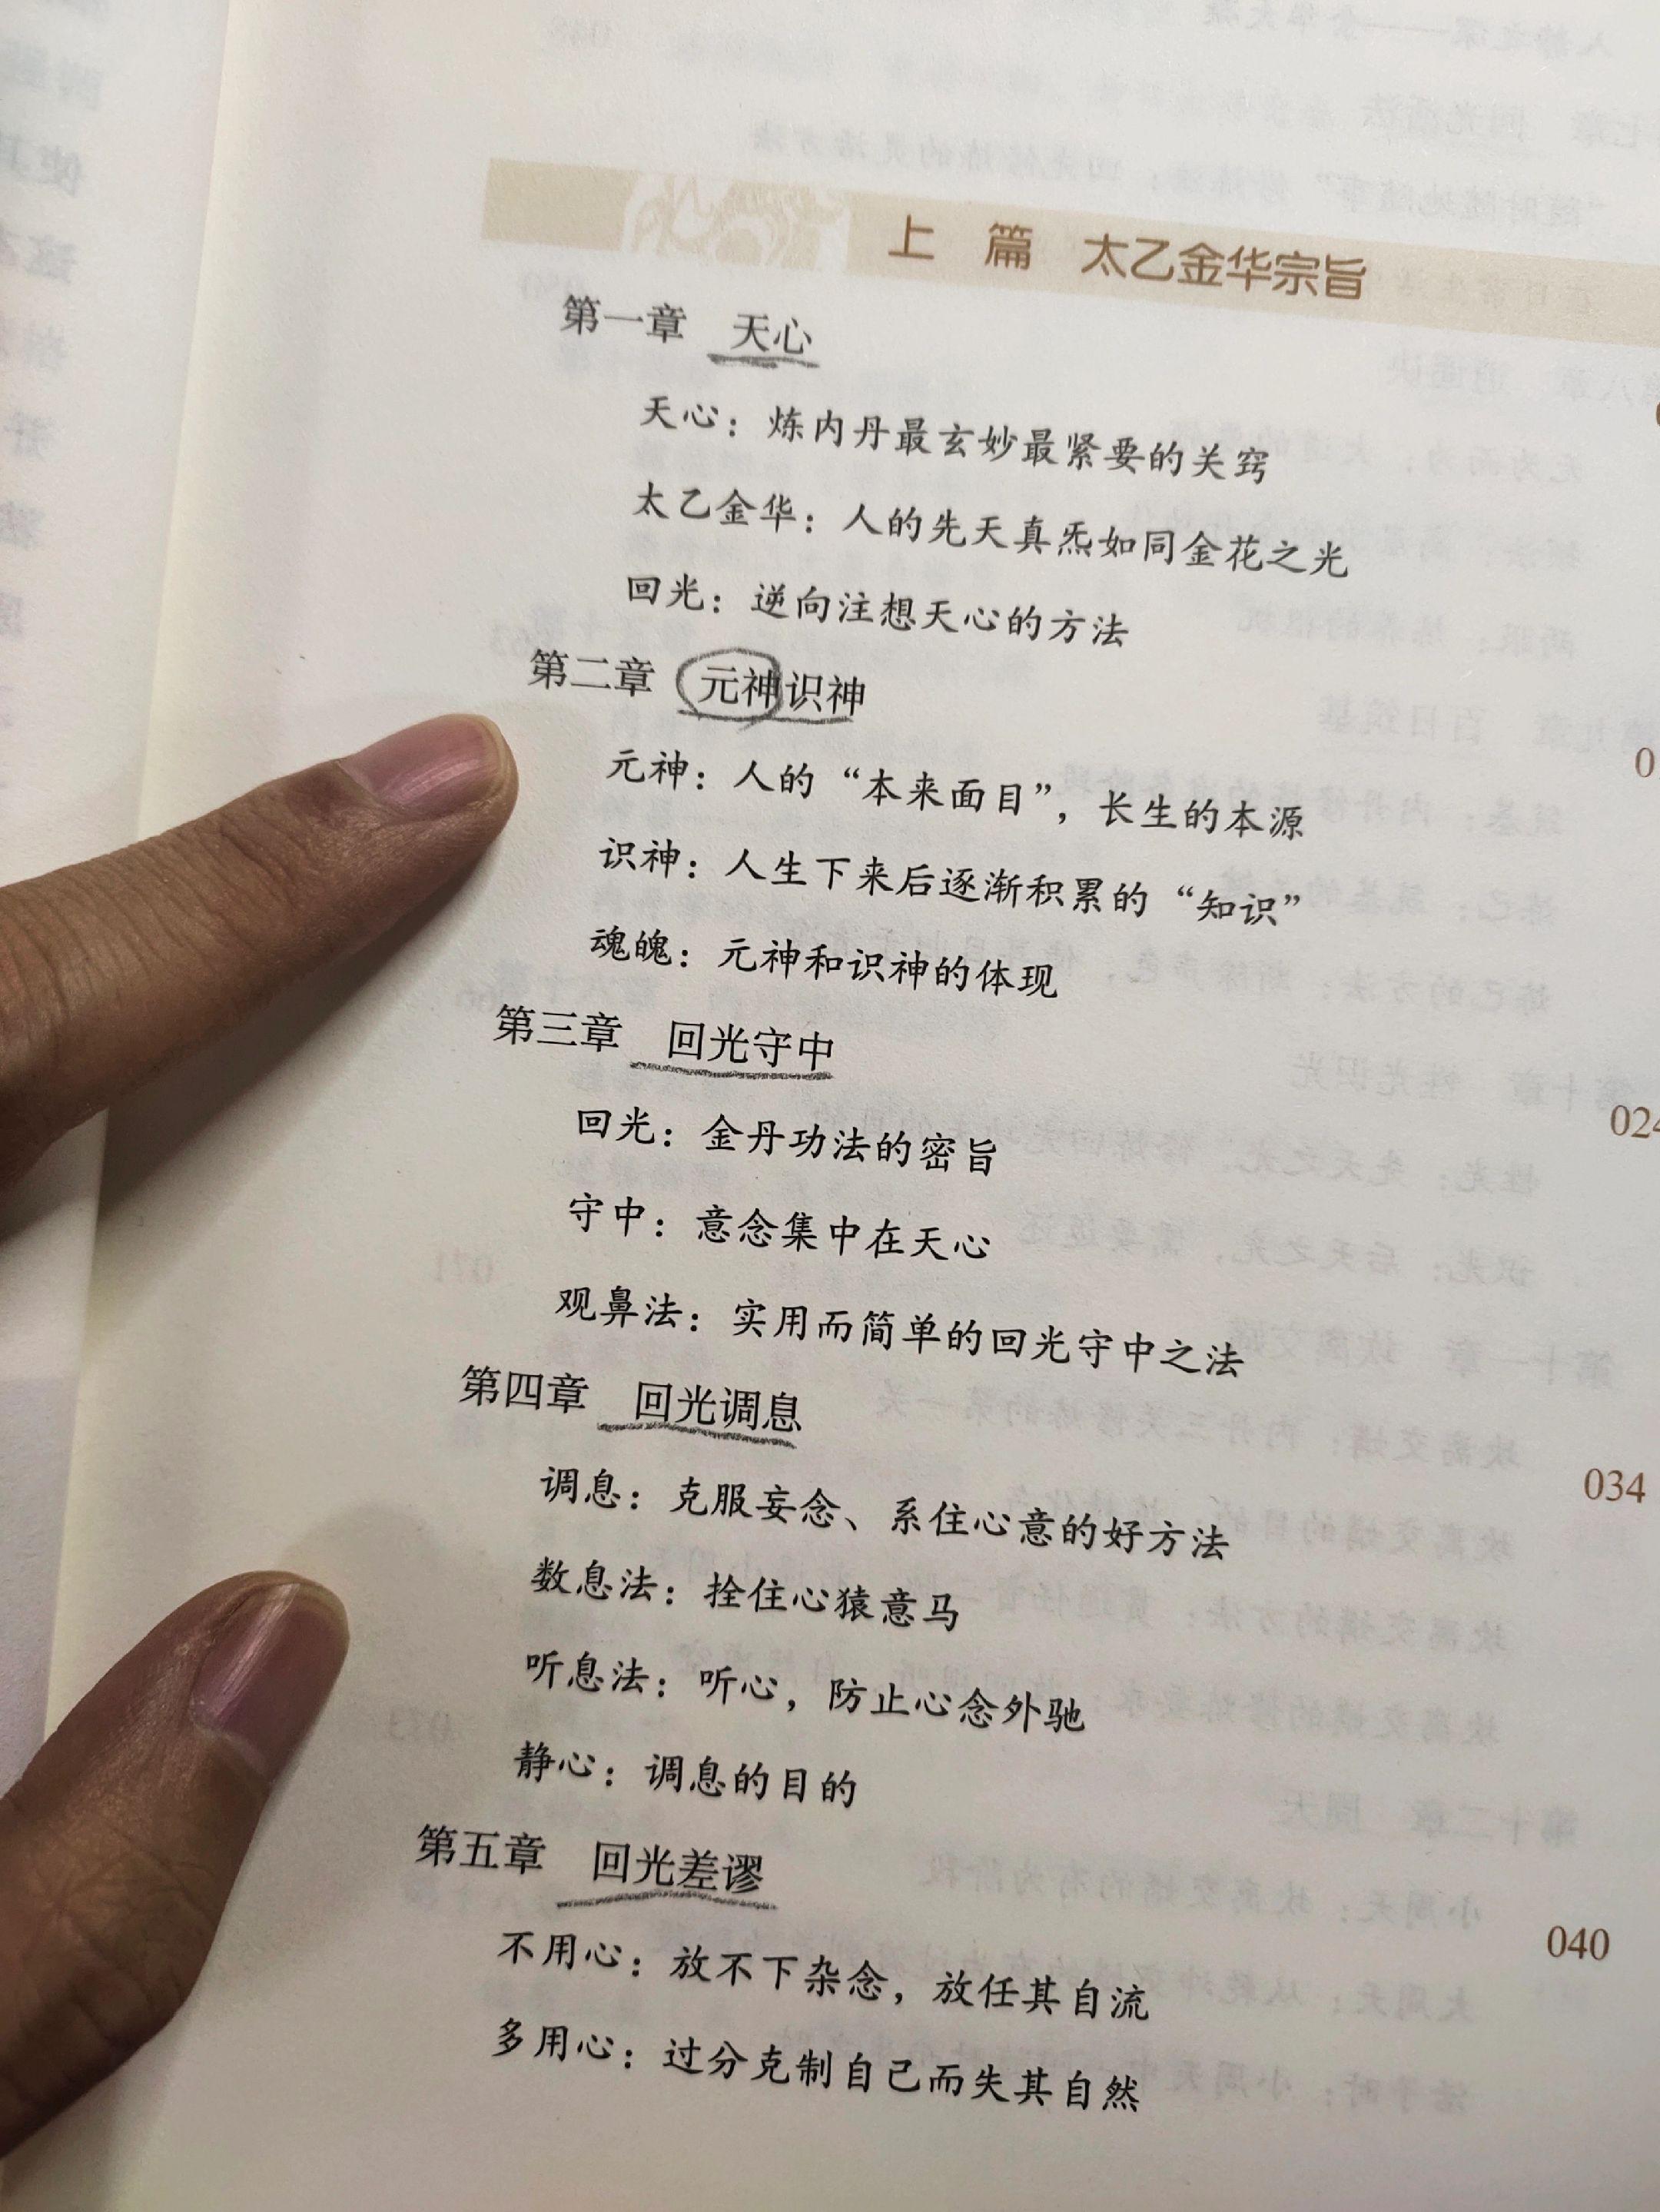 上 篇 太乙金华宗旨
第一章 天心
天心：炼内丹最玄妙最紧要的关窍
太乙金华：人的先天真炁如同金花之光
回光：逆向注想天心的方法
第二章 元神识神
元神：人的“本来面目”，长生的本源
识神：人生下来后逐渐积累的“知识”
魂魄：元神和识神的体现
第三章 回光守中 024
回光：金丹功法的密旨
守中：意念集中在天心
观鼻法：实用而简单的回光守中之法
第四章 回光调息 034
调息：克服妄念、系住心意的好方法
数息法：拴住心猿意马
听息法：听心，防止心念外驰
静心：调息的目的
第五章 回光差谬 040
不用心：放不下杂念，放任其自流
多用心：过分克制自己而失其自然